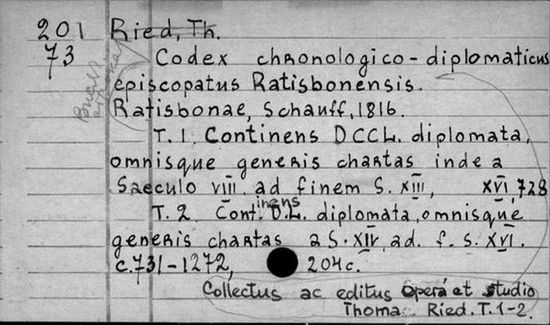 201 Ried, Th.
73 Codex chronologico-diplomaticus
episcopatus Ratisbonensis.
Ratisbonae, Schauff, 1816.
T. 1. Continens DCCL. diplomata,
omnisque generis chartas inde a
Saeculo VIII. ad finem S. XIII, XVI, 728
T. 2. Continens D.L. diplomata, omnisque
generis chartas a S. XIV. ad. f. S. XVI.
c. 731-1272, 204c.
Collectus ac editus Opera et studio
Thomae Ried. T. 1-2.